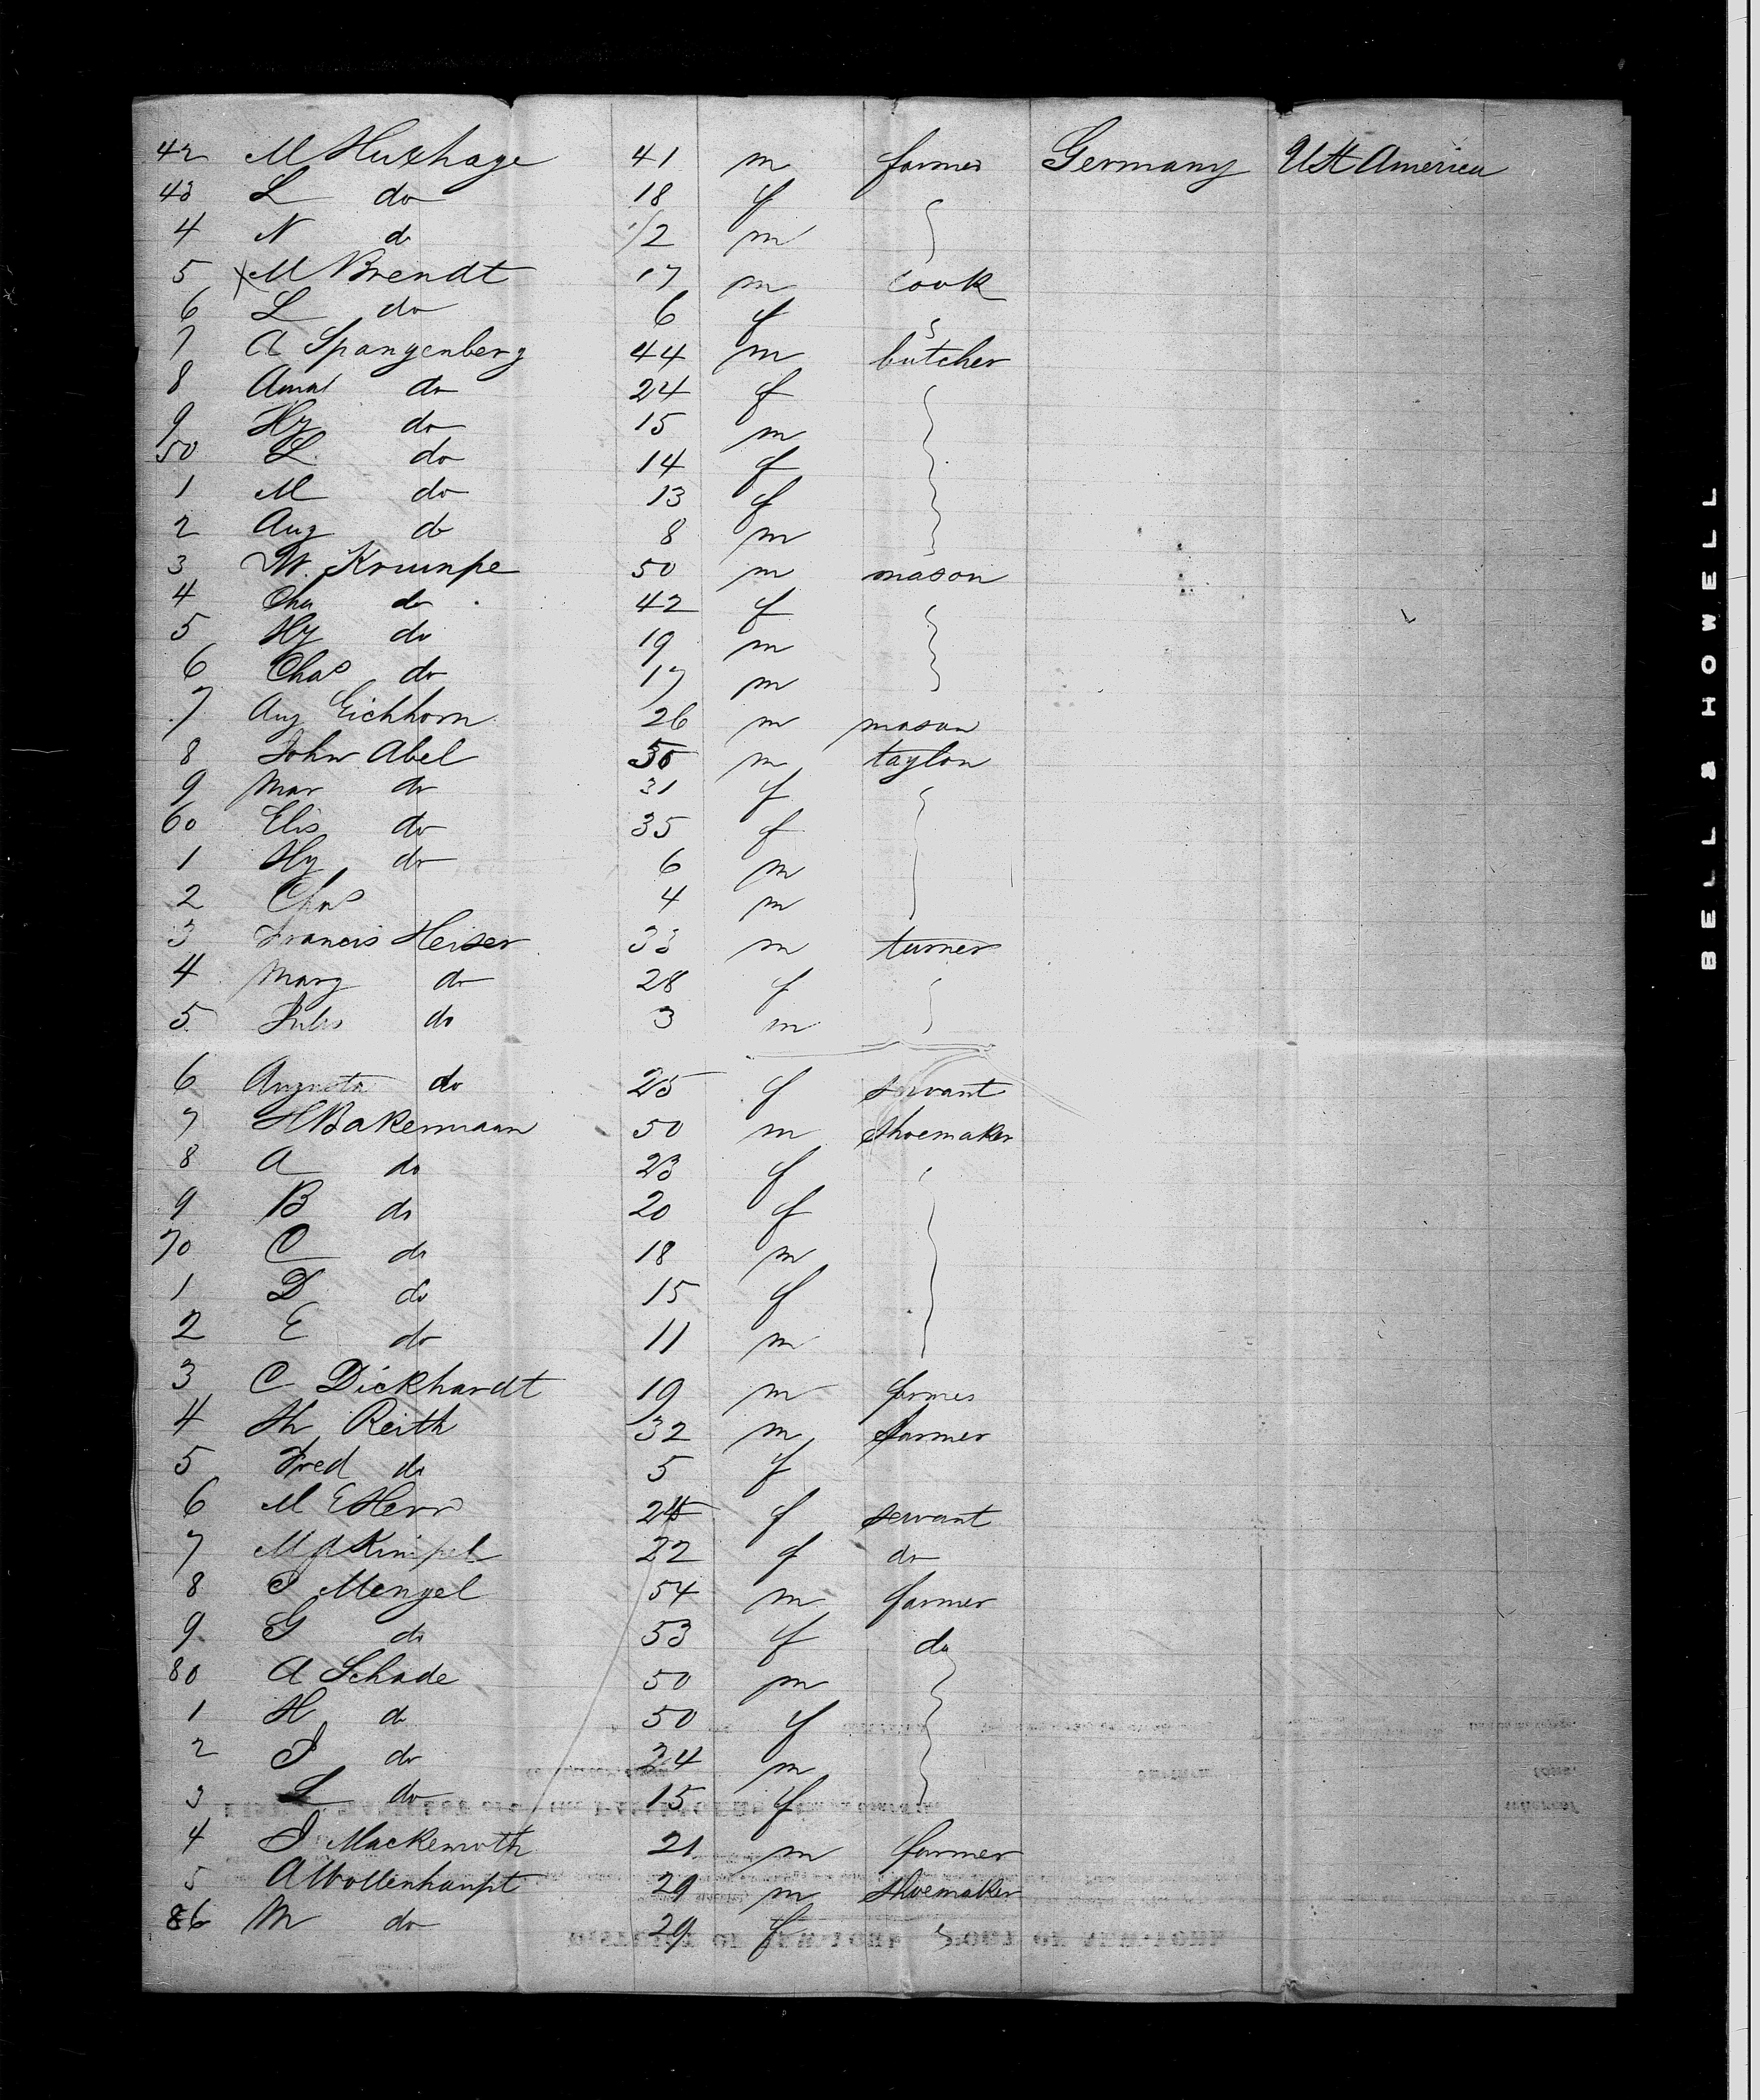 42 M Huxhage 41 m farmer Germany USt America
43 L do 18 f
4 N do 1/2 m
5 M Brendt 17 m cook
6 L do 6 f
7 A Spangenberg 44 m butcher
8 Amal do 24 f
9 Hy do 15 m
50 L do 14 f
1 M do 13 f
2 Aug do 8 m
3 W. Krumpe 50 m mason
4 Cha do 42 f
5 Hy do 19 m
6 Chas do 17 m
7 Aug Eichhorn 26 m mason
8 John Abel m taylor
9 Mar do 31 f
60 Elis do 35 f
1 Hy do 6 m
2 Chas 4 m
3 Francis Heiser 33 m turner
4 Marg do 28 f
5 Jules do 3 m
6 Augusta do 25 f servant
7 H Bakermann 50 m shoemaker
8 A do 23 f
9 B do 20 f
70 C do 18 m
1 D do 15 f
2 E do 11 m
3 C Dickhardt 19 m farmer
4 Hr Reith 32 m farmer
5 Fred do 5 f
6 M E Herr f servant
7 M A Kimpel 22 f do
8 J Mengel 54 m farmer
9 G do 53 f do
80 A Schade 50 m
1 H do 50 f
2 J do 24 m
3 L do 15 f
4 J Mackenroth 21 m farmer
5 A Wollenhaupt 29 m shoemaker
86 M do 29 f
BELL & HOWELL